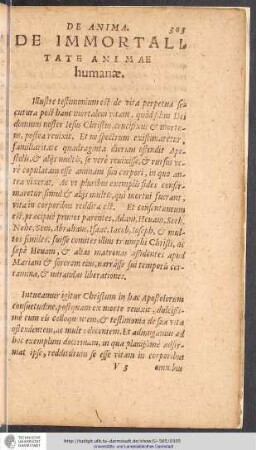 DE ANIMA. 303
DE IMMORTALI
TATE ANIMAE
humanæ.
Illustre testimonium est de vita perpetua se
cutura post hanc mortalem vitam, quòd filius Dei
dominus noster Iesus Christus, crucifixus & mortu
us, postea reuixit. Et ne spectrum existimaretur,
familiaritate quadraginta dierum ostendit Apo
stolis, & alijs multis, se verè reuixisse, & rursus ve
rè copulatam esse animam suo corpori, in quo an
tea vixerat. Ac vt pluribus exemplis fides confir
maretur simul & alijs multis, qui mortui fuerant
vita in corporibus reddita est. Et consentaneum
est, præcipuè primos parentes, Adam, Heuam, Seth,
Nohe, Sem, Abraham, Isaac, Iacob, Ioseph, & mul
tos similes, fuisse comites illius triumphi Christi, ac
sæpè Heuam, & alias matronas assidentes apud
Mariam & sororem eius, narrasse sui temporis cer
tamina, & mirandas liberationes.
Intueamur igitur Christum in hac Apostolorum
consuetudine, postquam ex morte reuixit, dulcissi
mè cum eis colloquentem, & testimonia de sua vita
ostendentem, ac multa docentem. Et adiungamus ad
hoc exemplum doctrinam, in qua planissimè adfir
mat ipse, redditurum se esse vitam in corporibus
V 5 omnibus